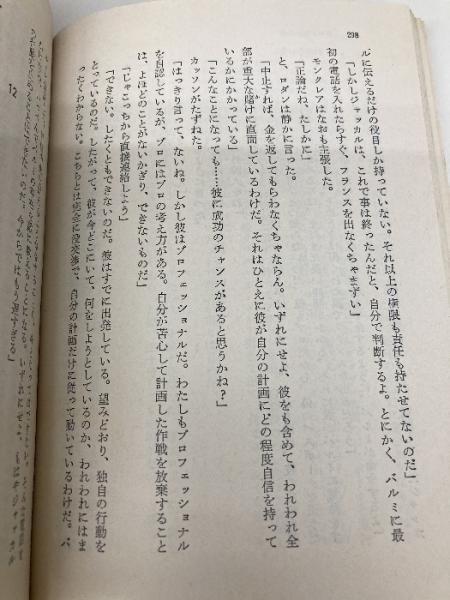 298
ルに伝えるだけの役目しか持っていない。それ以上の権限も責任も持たせてないのだ」
「しかしジャッカルは、これで事は終ったんだと、自分で判断するよ。とにかく、バルミに最
初の電話を入れたらすぐ、フランスを出なくちゃまずい」
モンクレアはなおも主張した。
「正論だね、たしかに」
と、ロダンは静かに言った。
「中止すれば、金を返してもらわなくちゃならん。いずれにせよ、彼をも含めて、われわれ全
部が重大な賭けに直面しているわけだ。それはひとえに彼が自分の計画にどの程度自信を持って
いるかにかかっている」
「こんなことになっても……彼に成功のチャンスがあると思うかね?」
カッソンがたずねた。
「はっきり言って、ないね。しかし彼はプロフェッショナルだ。わたしもプロフェッショナル
を自認しているが、プロにはプロの考え方がある。自分が苦心して計画した作戦を放棄すること
は、よほどのことがないかぎり、できないものだ」
「じゃこっちから直接連絡しよう」
「できない。したくともできないのだ。彼はすでに出発している。望みどおり、独自の行動を
とっているのだ。したがって、彼が今どこにいて、何をしようとしているのか、われわれにはま
ったくわからない。こちらとは完全に没交渉で、自分の計画だけに従って動いているわけだ。バ
12